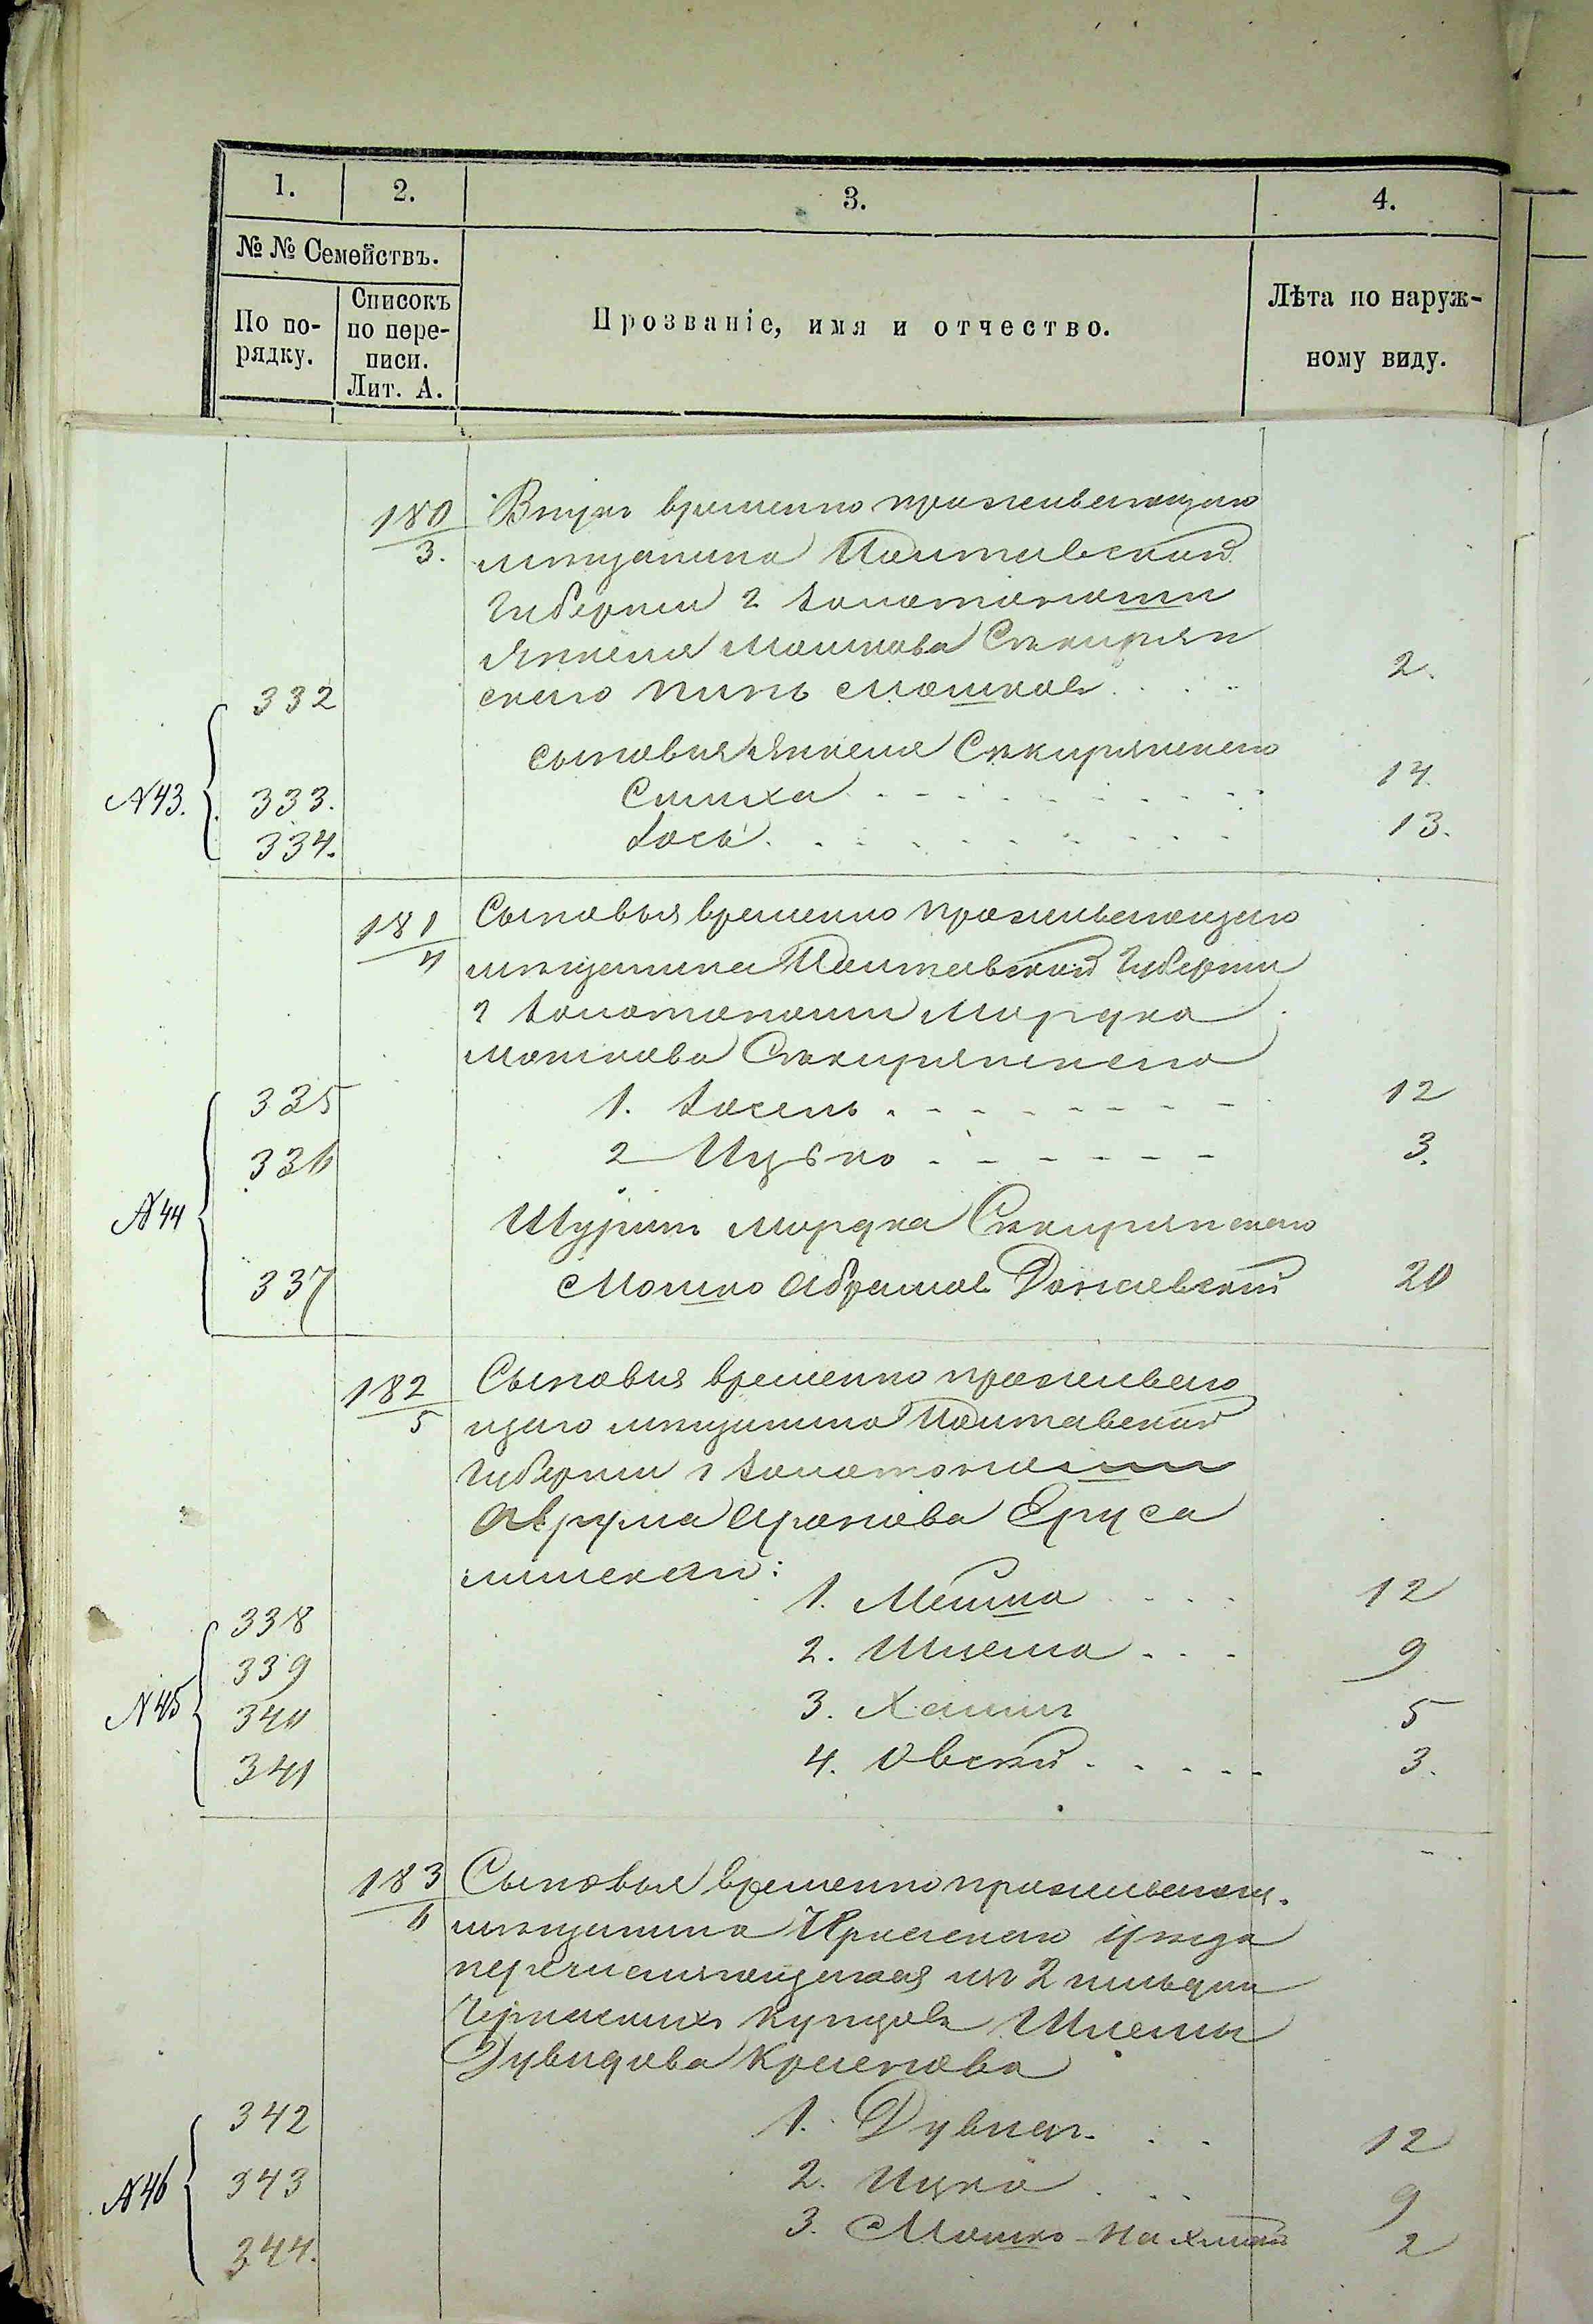 1. 2. 3. 4.
№ № Семействъ.
По по-рядку. Списокъ по пере-писи. Лит. А. Прозваніе, имя и отчество. Лѣта по наруж-ному виду.
180/3. Внукъ временно проживающаго
мѣщанина Полтавской
Губерніи г Золотоноши
Янкеля Мошкова Сѣкирян
332 скаго Мошков 2.
сыновья Янкеля Сѣкирянскаго
N43. 333. Симха 14.
334. Іось 13.
181/4 Сыновья временно проживающаго
мѣщанина Полтавской Губерніи
г Золотоноши Мордка
Мошкова Сѣкирянскаго
335 1. Іосель 12
336 2 Ицько 3.
N44 Шуринъ Мордка Сѣкирянскаго
337 Мошко Абрамов 20
182/5 Сыновья временно проживаю
щаго мѣщанина Полтавской
Губерніи г Золотоноши
Аврума Аронова Еруса
лимскаго:
338 1. 12
339 2. Шлема 9
N45 340 3. Хаимъ 5
341 4. Овсей 3.
183/6 Сыновья временно проживающ.
мѣщанина уѣзда
перечисляющагося из 2 гильдіи
купцовъ Шлемы
Дувидова
342 1. Дувидъ 12
N46 343 2. Ицко 9
344. 3. Мошко-Нахман 2